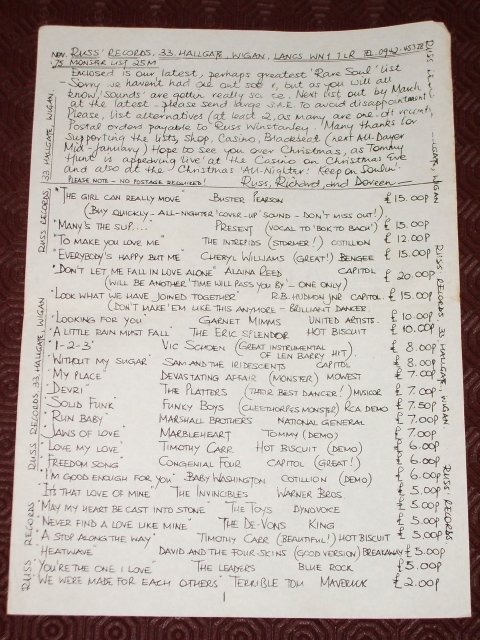 NOV. RUSS' RECORDS, 33, HALLGATE, WIGAN, LANCS WN1 1LR TEL 0942-
'75 MONSTER LIST 25M
Enclosed is our latest, perhaps greatest 'Rare Soul' list
- Sorry we haven't had one out sooner, but as you will all
know, 'Sounds' are gettin really scarce. Next list out by March
at the latest - please send large S.A.E. to avoid disappointment
Please, list alternatives (at least 2, as many are one-offs
Postal orders payable to Russ Winstanley. Many thanks for
supporting the lists, Shop, Casino, Blackpool (next All-Dayer
Mid-January) Hope to see you over Christmas, as Tommy
Hunt is appearing 'live' at the Casino on Christmas Eve
and also at the Christmas All-Nighter! Keep on Soulin'.
PLEASE NOTE - NO POSTAGE REQUIRED! Russ, Richard, and Doreen
"THE GIRL CAN REALLY MOVE" BUSTER PEARSON £15.00P
(BUY QUICKLY - ALL-NIGHTER 'COVER-UP' SOUND - DON'T MISS OUT!)
"MANY'S THE SLIP.... PRESENT (VOCAL TO 'BOK TO BACH') £15.00P
"TO MAKE YOU LOVE ME" THE INTREPIDS (STORMER!) COTILLION £12.00P
"EVERYBODY'S HAPPY BUT ME" CHERYL WILLIAMS (GREAT!) BENGEE £15.00P
"DON'T LET ME FALL IN LOVE ALONE" ALAINA REED CAPITOL £20.00P
(WILL BE ANOTHER 'TIME WILL PASS YOU BY' - ONE ONLY)
"LOOK WHAT WE HAVE JOINED TOGETHER" R.B. HUDMON JNR CAPITOL £15.00P
(DON'T MAKE 'EM LIKE THIS ANYMORE - BRILLIANT DANCER
"LOOKING FOR YOU" GARNET MIMMS UNITED ARTISTS. £10.00P
"A LITTLE RAIN MUST FALL" THE ERIC SPLENDOR HOT BISCUIT £10.00P
"1-2-3" VIC SCHOEN (GREAT INSTRUMENTAL OF LEN BARRY HIT) £8.00P
"WITHOUT MY SUGAR" SAM AND THE IRIDESCENTS CAPITOL £8.00P
"MY PLACE" DEVASTATING AFFAIR (MONSTER) MOWEST £7.00P
"DEVRI" THE PLATTERS (THEIR BEST DANCER!) MUSICOR £7.00P
"SOLID FUNK" FUNKY BOYS (CLEETHORPES MONSTER) RCA DEMO £7.50P
"RUN BABY" MARSHALL BROTHERS NATIONAL GENERAL £7.00P
"JAWS OF LOVE" MARBLEHEART TOMMY (DEMO) £7.00P
"LOVE MY LOVE" TIMOTHY CARR HOT BISCUIT (DEMO) £6.00P
"FREEDOM SONG" CONGENIAL FOUR CAPITOL (GREAT!) £6.00P
"I'M GOOD ENOUGH FOR YOU" BABY WASHINGTON COTILLION (DEMO) £6.00P
"IT'S THAT LOVE OF MINE" THE INVINCIBLES WARNER BROS. £5.00P
"MAY MY HEART BE CAST INTO STONE" THE TOYS DYNOVOICE £5.00P
"NEVER FIND A LOVE LIKE MINE" THE DE-VONS KING £5.00P
"A STOP ALONG THE WAY" TIMOTHY CARR (BEAUTIFUL!) HOT BISCUIT £5.00P
"HEATWAVE" DAVID AND THE FOUR-SKINS (GOOD VERSION) BREAKAWAY £5.00P
"YOU'RE THE ONE I LOVE" THE LEADERS BLUE ROCK £5.00P
"WE WERE MADE FOR EACH OTHER" TERRIBLE TOM MAVERICK £2.00P
1
RUSS RECORDS 33 HALLGATE WIGAN RUSS RECORDS 33 HALLGATE WIGAN
HALLGATE, WIGAN RUSS RECORDS 33 HALLGATE, WIGAN RUSS RECORDS